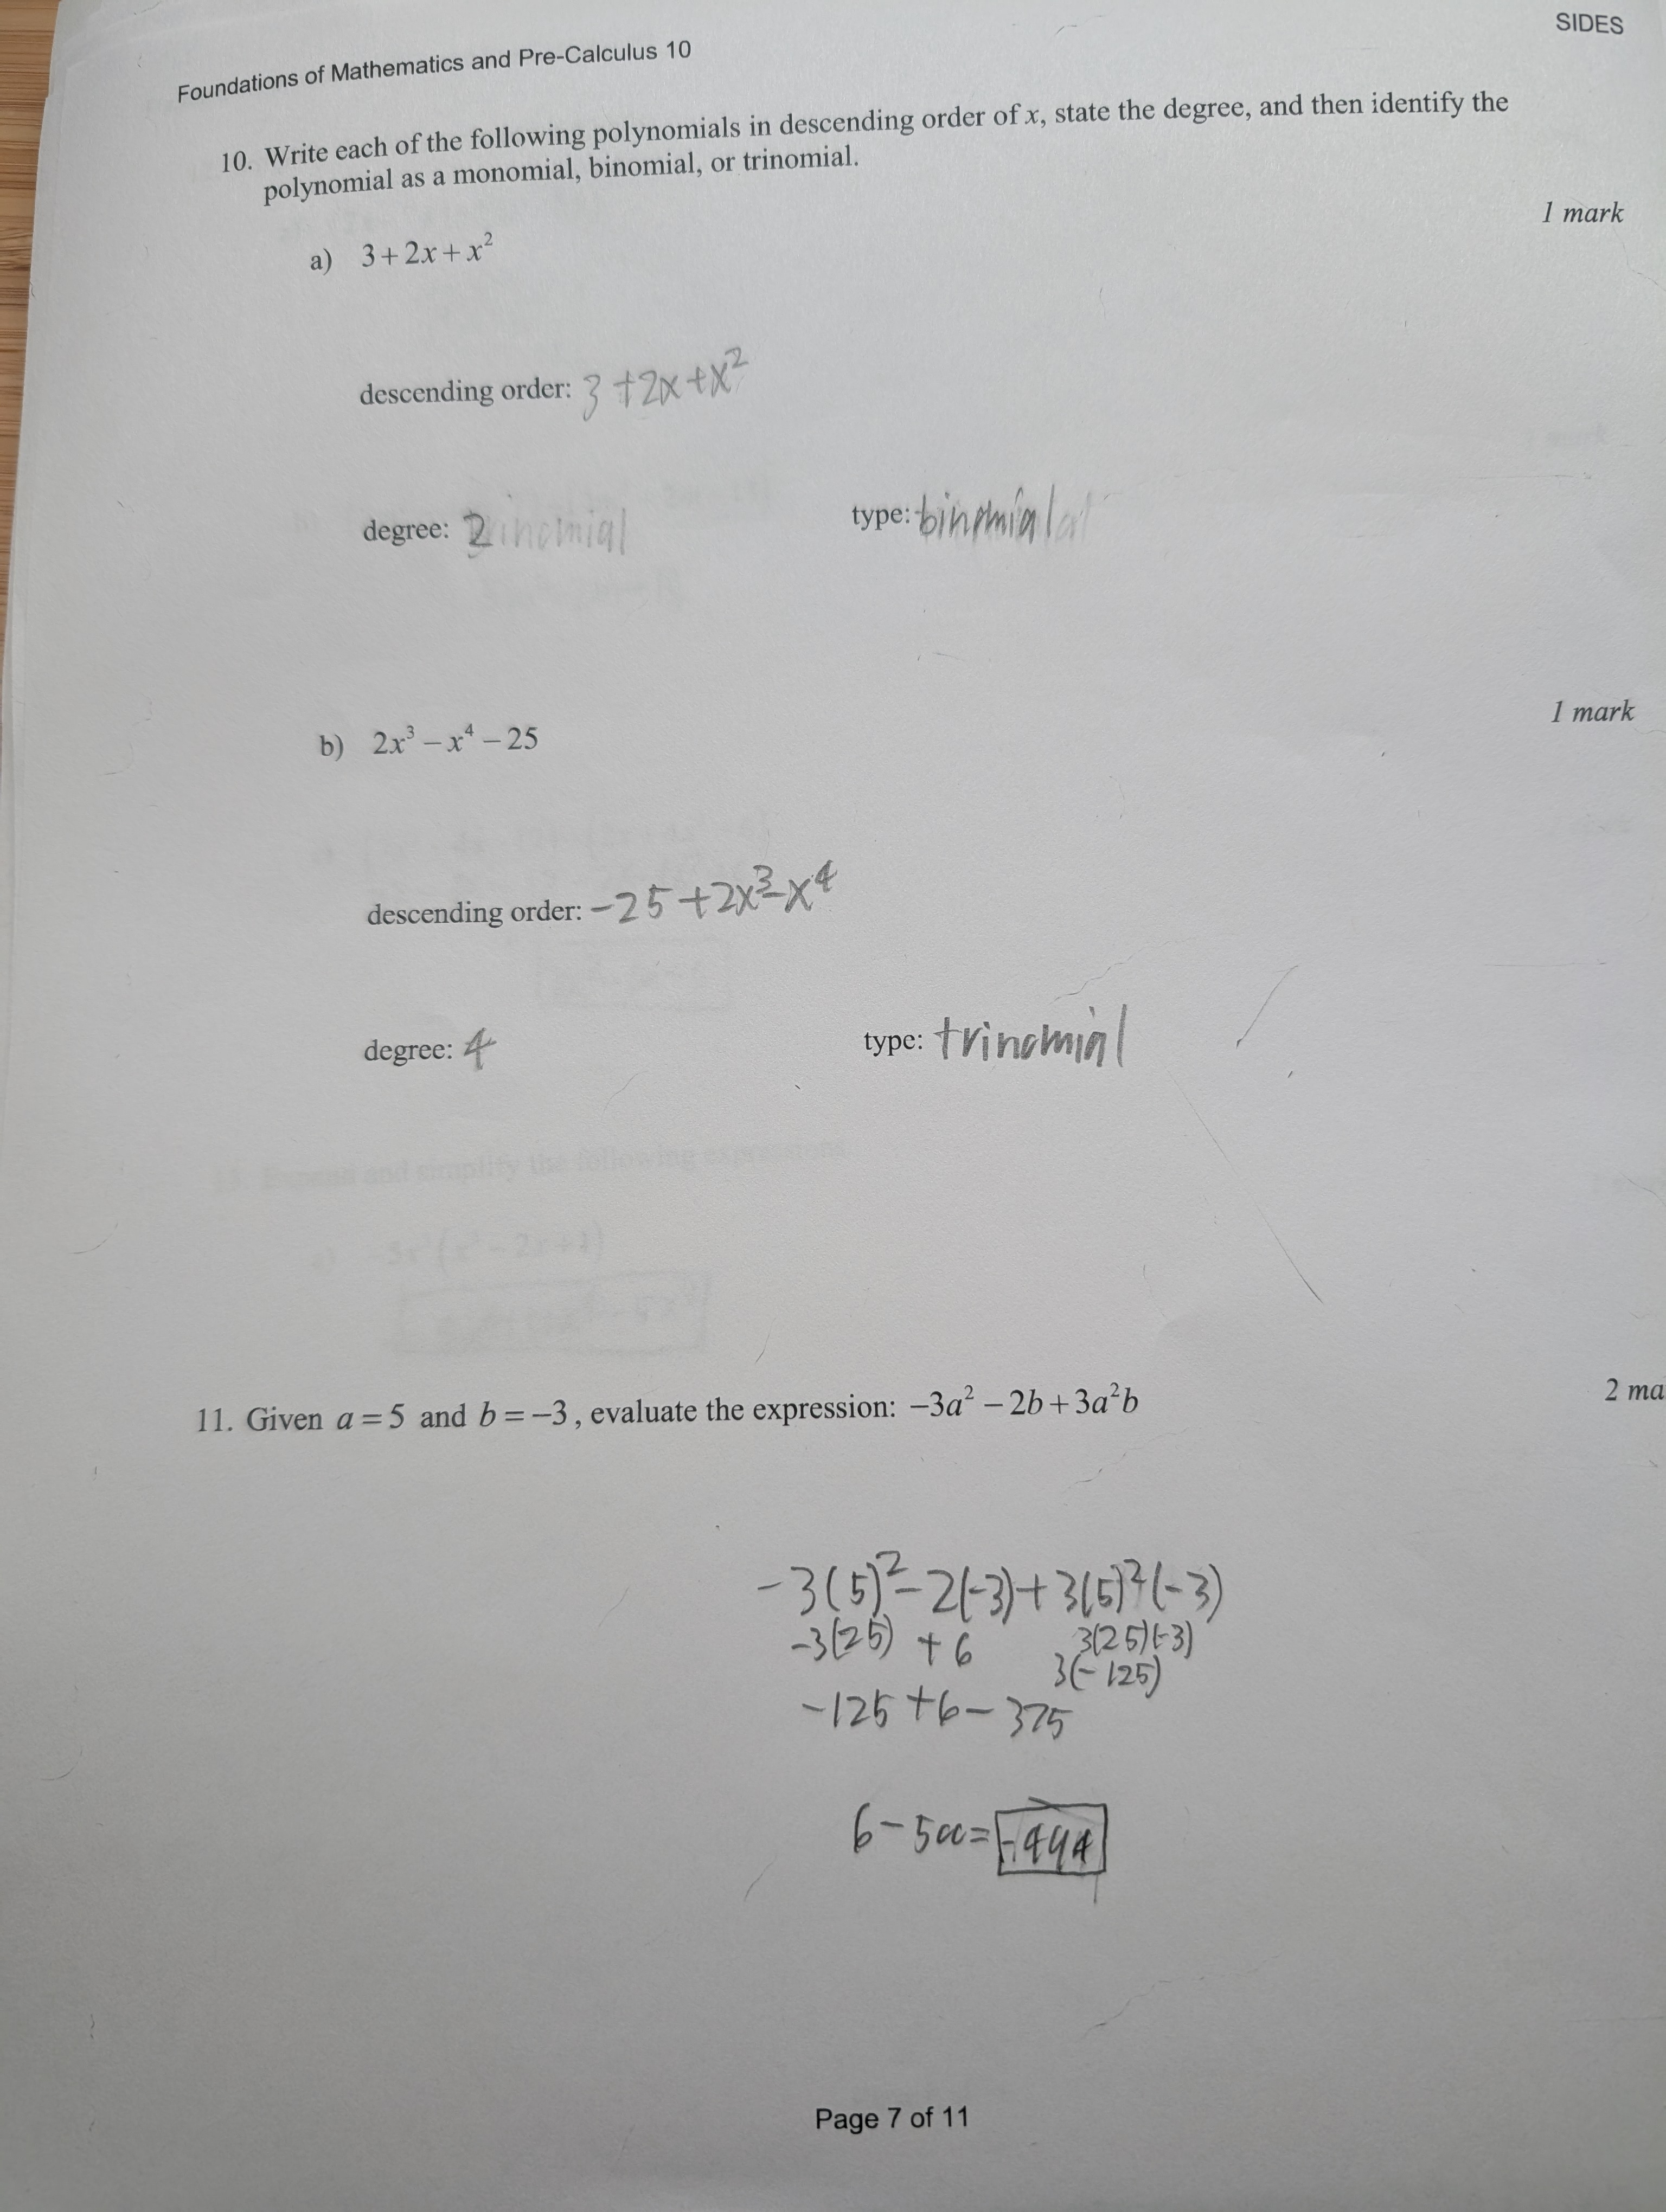 SIDES
Foundations of Mathematics and Pre-Calculus 10
10. Write each of the following polynomials in descending order of x, state the degree, and then identify the
polynomial as a monomial, binomial, or trinomial.
1 mark
a) 3+2x+x²
descending order: 3+2x+x²
degree: 2 type: binomial
1 mark
b) 2x³−x⁴−25
descending order: −25+2x³−x⁴
degree: 4 type: trinomial
11. Given a=5 and b=−3, evaluate the expression: −3a²−2b+3a²b
2 ma
−3(5)²−2(−3)+3(5)²(−3)
−3(25) +6 3(25)(−3)
3(−125)
−125+6−375
6−500=−494
Page 7 of 11